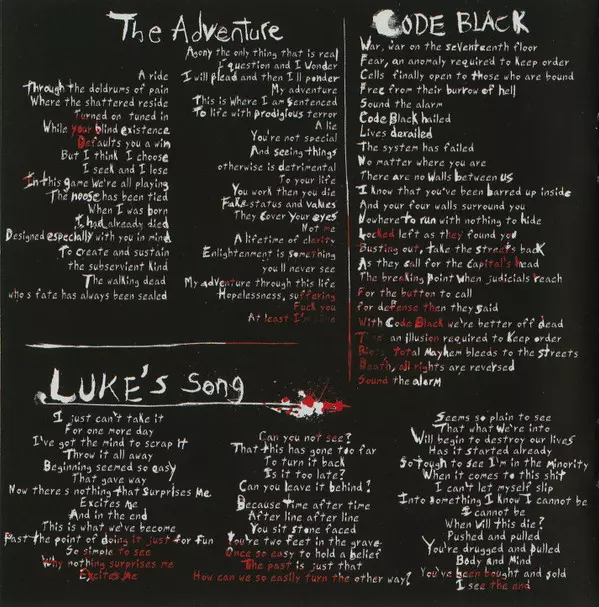 The Adventure
A ride
Through the doldrums of pain
Where the shattered reside
Turned on tuned in
While your blind existence
Defaults you a win
But I think I choose
I seek and I lose
In this game we're all playing
The noose has been tied
When I was born
I had already died
Designed especially with you in mind
To create and sustain
the subservient Kind
The walking dead
who's fate has always been sealed
Agony the only thing that is real
I question and I Wonder
I will plead and then I'll ponder
My adventure
This is where I am sentenced
To life with prodigious terror
A lie
You're not special
And seeing things
otherwise is detrimental
To your life
You work then you die
Fake status and values
They Cover Your eyes
Not me
A lifetime of clarity
Enlightenment is something
you'll never see
My adventure through this life
Hopelessness, suffering
Fuck you
At least I'm
CODE BLACK
War, war on the seventeenth floor
Fear, an anomaly required to Keep order
Cells finally open to those who are bound
Free from their burrow of hell
Sound the alarm
Code Black hailed
Lives derailed
The system has failed
No matter where you are
There are no Walls between us
I Know that you've been barred up inside
And your four walls surround you
Nowhere to run with nothing to hide
Locked left as they found you
Busting out, take the streets back
As they call for the Capital's head
The breaking Point when judicials reach
For the button to call
for defense then they said
With Code Black we're better off dead
an illusion required to Keep order
Riots, Total Mayhem bleeds to the streets
Death, all rights are reversed
Sound the alarm
LUKE's Song
I just can't take it
For one more day
I've got the mind to scrap It
Throw it all away
Beginning seemed so easy
That gave way
Now there's nothing that Surprises Me
Excites me
And in the end
This is what we've become
Past the point of doing it just for fun
So simple to see
Why nothing surprises me
Excites me
Can you not see?
That this has gone too far
To turn it back
Is it too late?
Can you leave it behind?
Because Time after time
After line after line
You sit stone faced
You're two feet in the grave
Once so easy to hold a belief
The past is just that
How can we so easily turn the other way?
Seems so plain to see
That what We're into
Will begin to destroy our lives
Has it started already
So tough to see I'm in the minority
When it comes to this shit
I can't let myself slip
Into something I Know I cannot be
I cannot be
When Will this die?
Pushed and pulled
You're drugged and pulled
Body and Mind
You've been bought and sold
I see the end